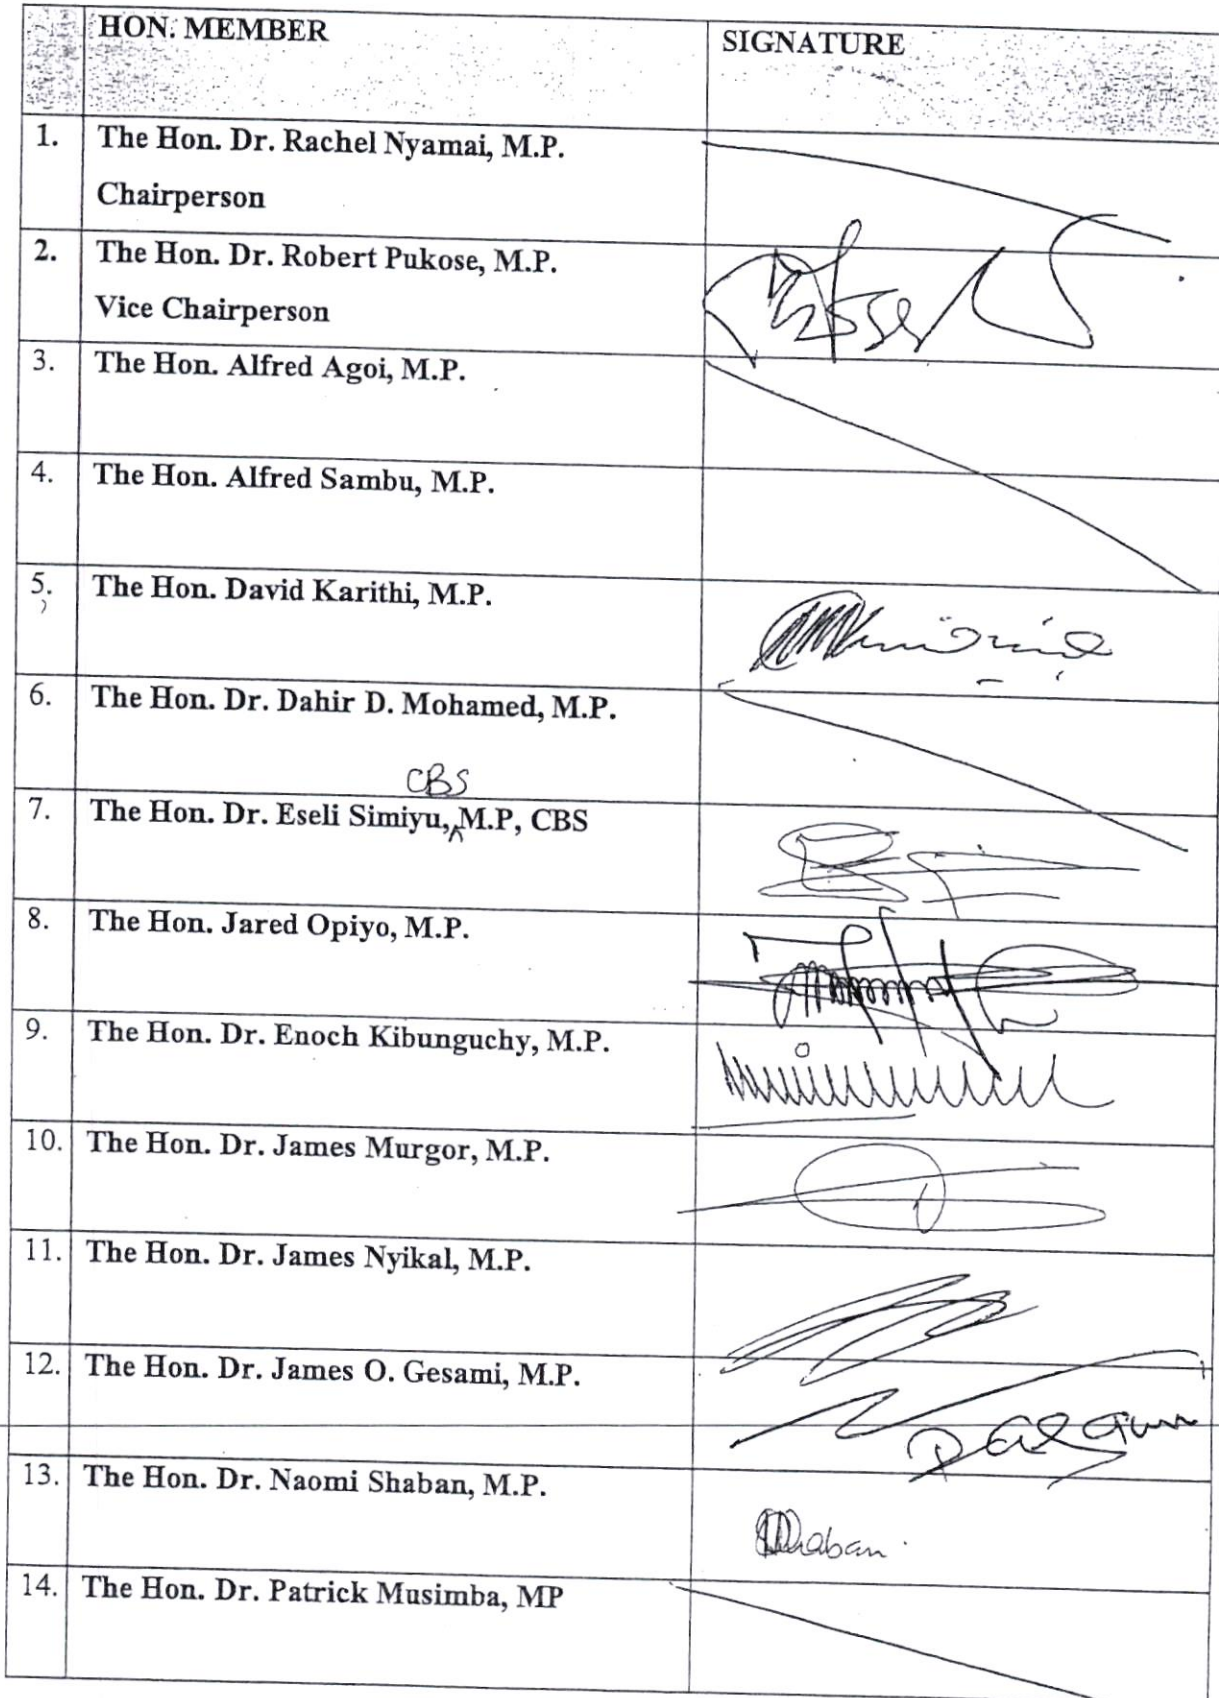 HON. MEMBER SIGNATURE
1. The Hon. Dr. Rachel Nyamai, M.P.
Chairperson
2. The Hon. Dr. Robert Pukose, M.P.
Vice Chairperson
3. The Hon. Alfred Agoi, M.P.
4. The Hon. Alfred Sambu, M.P.
5. The Hon. David Karithi, M.P.
6. The Hon. Dr. Dahir D. Mohamed, M.P.
CBS
7. The Hon. Dr. Eseli Simiyu, M.P, CBS
8. The Hon. Jared Opiyo, M.P.
9. The Hon. Dr. Enoch Kibunguchy, M.P.
10. The Hon. Dr. James Murgor, M.P.
11. The Hon. Dr. James Nyikal, M.P.
12. The Hon. Dr. James O. Gesami, M.P.
13. The Hon. Dr. Naomi Shaban, M.P.
14. The Hon. Dr. Patrick Musimba, MP